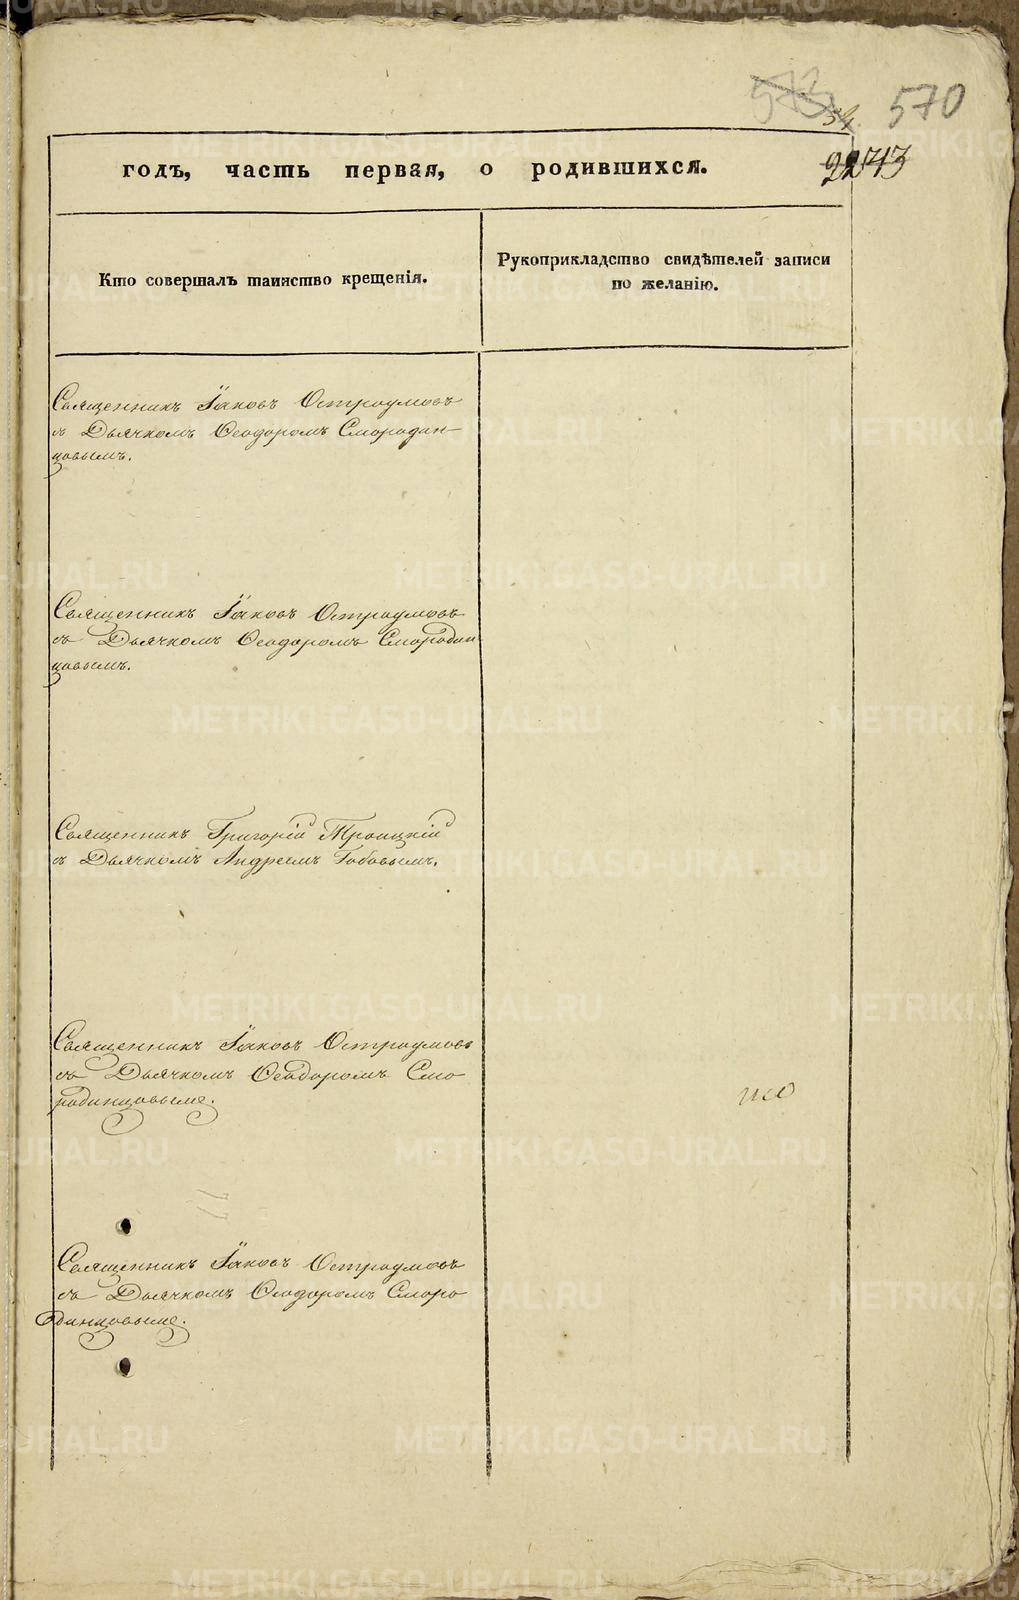 570
годъ, часть первая, о родившихся.
Кто совершалъ таинство крещенія.
Рукоприкладство свидѣтелей записи
по желанію.
Священникъ Іаковъ Остроумовъ
съ Дьячкомъ Ѳеодоромъ Смородин-
цовымъ.
Священникъ Іаковъ Остроумовъ
съ Дьячкомъ Ѳеодоромъ Смородин
цовымъ.
Священникъ Григорій Троицкій
съ Дьячкомъ Андреемъ Бобовымъ.
Священникъ Іаковъ Остроумовъ
съ Дьячкомъ Ѳеодоромъ Смо
родинцовымъ.
Священникъ Іаковъ Остроумовъ
съ Дьячкомъ Ѳеодоромъ Сморо
динцовымъ.
METRIKI.GASO-URAL.RU